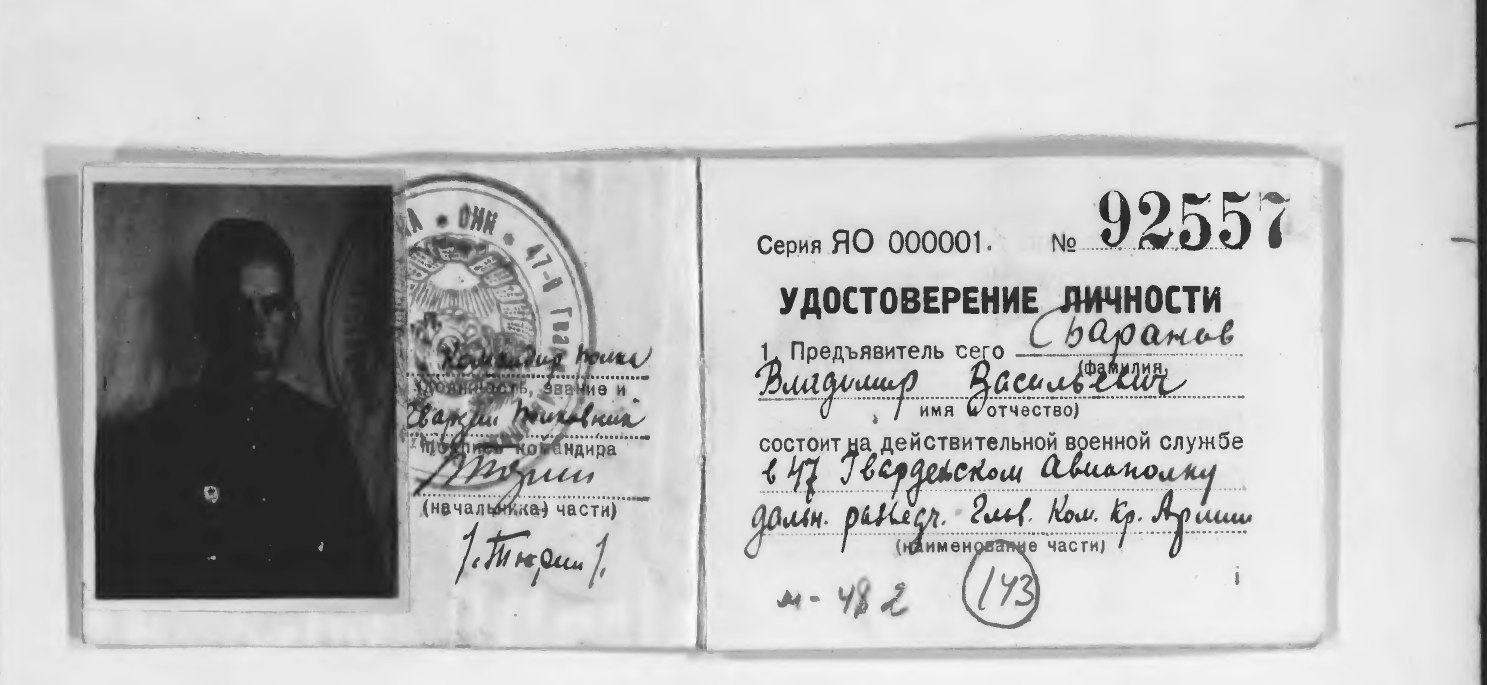 * ОНН * 47-й Гва
Командир полка
(должность, звание и
Гвардии Полковник
подпись командира
(начальника) части)
/Тюрин/.
Серия ЯО 000001. № 92557
УДОСТОВЕРЕНИЕ ЛИЧНОСТИ
1. Предъявитель сего Баранов
(фамилия,
Владимир Васильевич
имя и отчество)
состоит на действительной военной службе
в 47 Гвардейском Авиаполку
дальн. разведч. Глав. Ком. Кр. Армии
(наименование части)
м-48 2 143